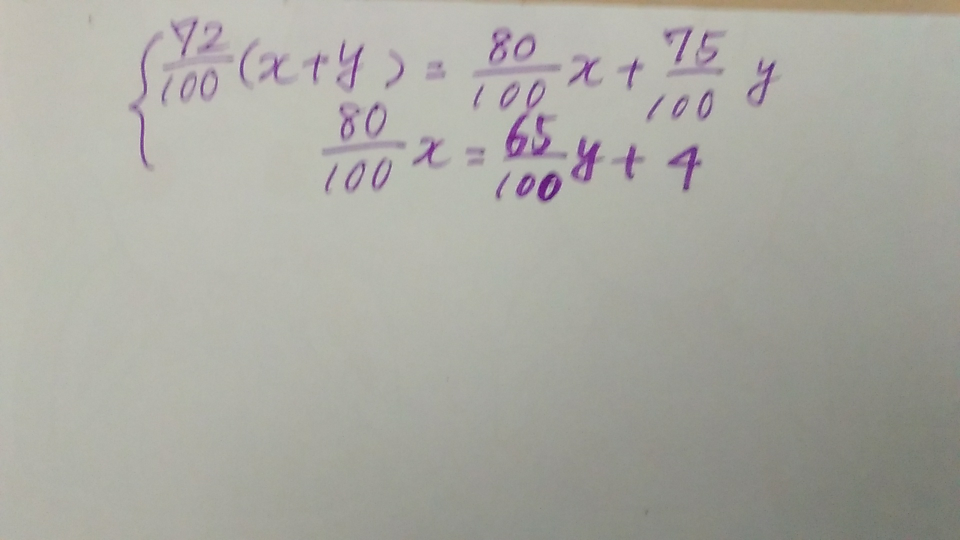 { 72/100 (x+y) = 80/100 x + 75/100 y
80/100 x = 65/100 y + 4